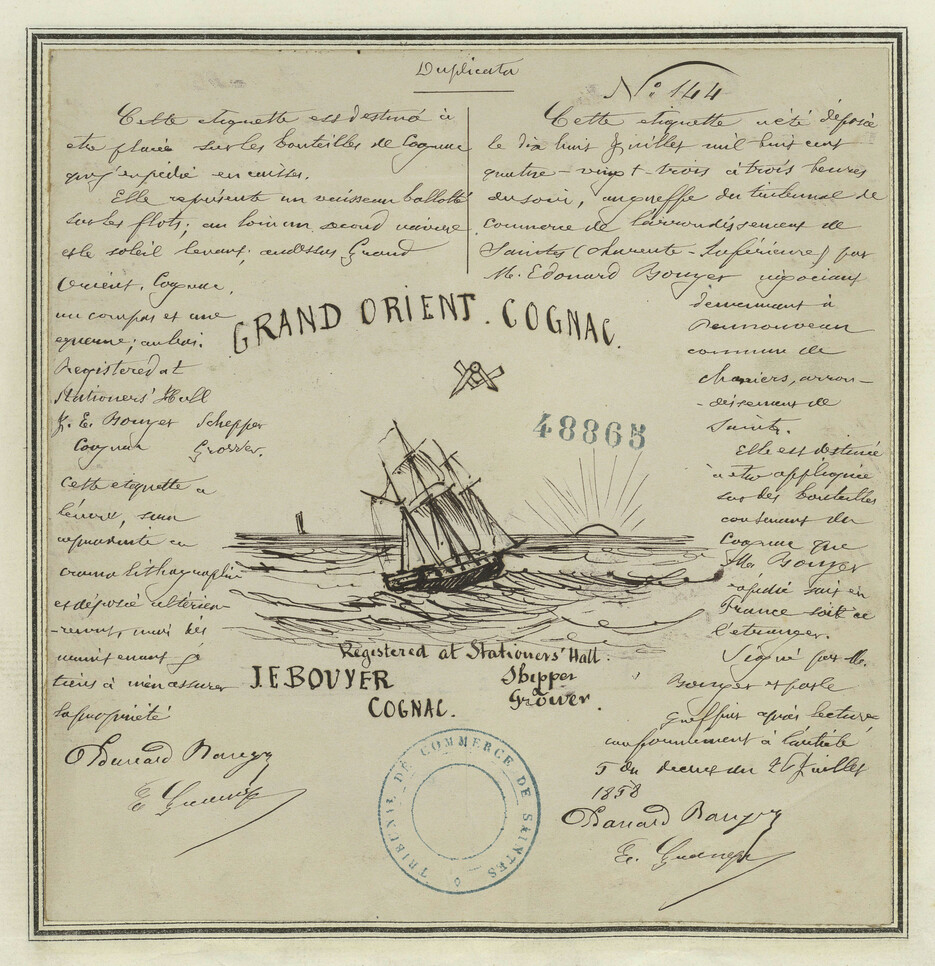 Duplicata
Cette etiquette est destiné à
etre placée sur les bouteilles de Cognac
que j'expedie en caisses.
Elle représente un vaisseau ballotté
sur les flots; au loin un second navire
et le soleil levant; audessus Grand
Orient, Cognac,
un compas et une
equerre; au bas:
Registered at
Stationers' Hall
J. E. Bouyer Schepper
Cognac Grower.
Cette etiquette a
l'encre, sera
reproduite en
chromo lithographie
et déposée ultérieu-
-rement, mais dès
maintenant je
tiens à m'en assurer
la propriété
Edouard Bouyer
N° 144
Cette etiquette a été déposée
le dix huit Juillet mil huit cent
quatre-vingt-trois à trois heures
du soir, au greffe du tribunal de
Commerce de l'arrondissement de
Saintes (Charente-Inférieure) par
M. Edouard Bouyer négociant
demeurant à
commune de
Chaniers, arron-
-dissement de
Saintes.
Elle est destinée
à etre appliquée
sur des bouteilles
contenant du
Cognac que
M. Bouyer
expédie soit en
France soit à
l'etranger.
Signé par M.
Bouyer et par le
Greffier après lecture
conformément à l'article
5 du decret du 26 Juillet
1858
Edouard Bouyer
GRAND ORIENT. COGNAC.
48865
Registered at Stationers' Hall.
J. E. BOUYER
Shipper
&
Grower.
COGNAC.
TRIBUNAL DE COMMERCE DE SAINTES